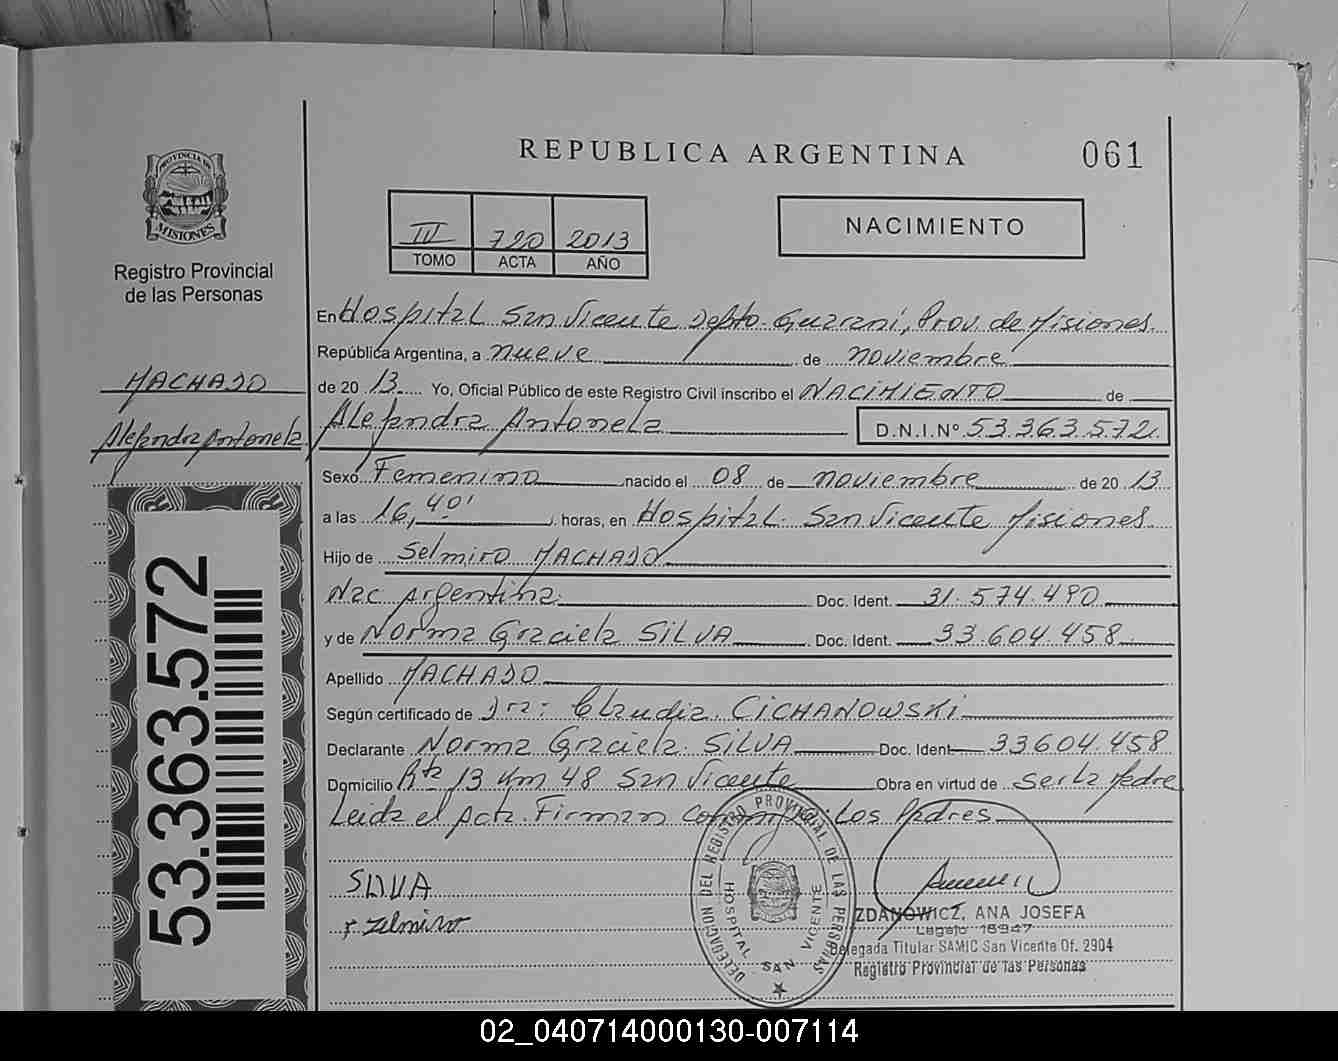 REPUBLICA ARGENTINA
061
PROVINCIA DE MISIONES
Registro Provincial
de las Personas
III 720 2013
TOMO ACTA AÑO
NACIMIENTO
En Hospital San Vicente Depto. Guaraní, Prov. de Misiones
República Argentina, a nueve de noviembre
de 20 13 Yo, Oficial Público de este Registro Civil inscribo el NACIMIENTO de
Alejandra Antonela D.N.I.Nº 53.363.572
MACHADO
Alejandra Antonela
Sexo Femenino nacido el 08 de noviembre de 20 13
a las 16,40' horas, en Hospital San Vicente Misiones
Hijo de Selmiro MACHADO
Nac Argentina Doc. Ident. 31.574.490
y de Norma Graciela SILVA Doc. Ident. 33.604.458
Apellido MACHADO
Según certificado de Dra: Claudia CICHANOWSKI
Declarante Norma Graciela SILVA Doc. Ident 33604.458
Domicilio Rta 13 Km 48 San Vicente Obra en virtud de ser la Madre
Leida el Acta Firman Los Padres
SILVA
Zelmiro
53.363.572
DELEGACION DEL REGISTRO PROVINCIAL DE LAS PERSONAS
HOSPITAL SAN VICENTE
ZDANOWICZ, ANA JOSEFA
Legajo 16947
Delegada Titular SAMIC San Vicente Of. 2904
Registro Provincial de las Personas
02_040714000130-007114